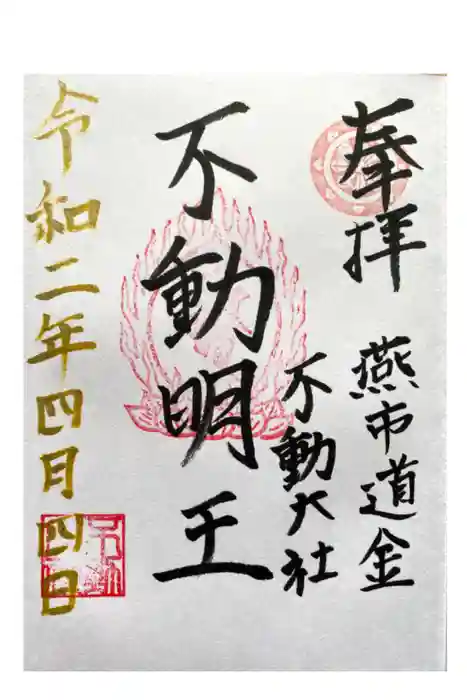 奉拝
燕市道金
不動大社
不動明王
令和二年四月四日